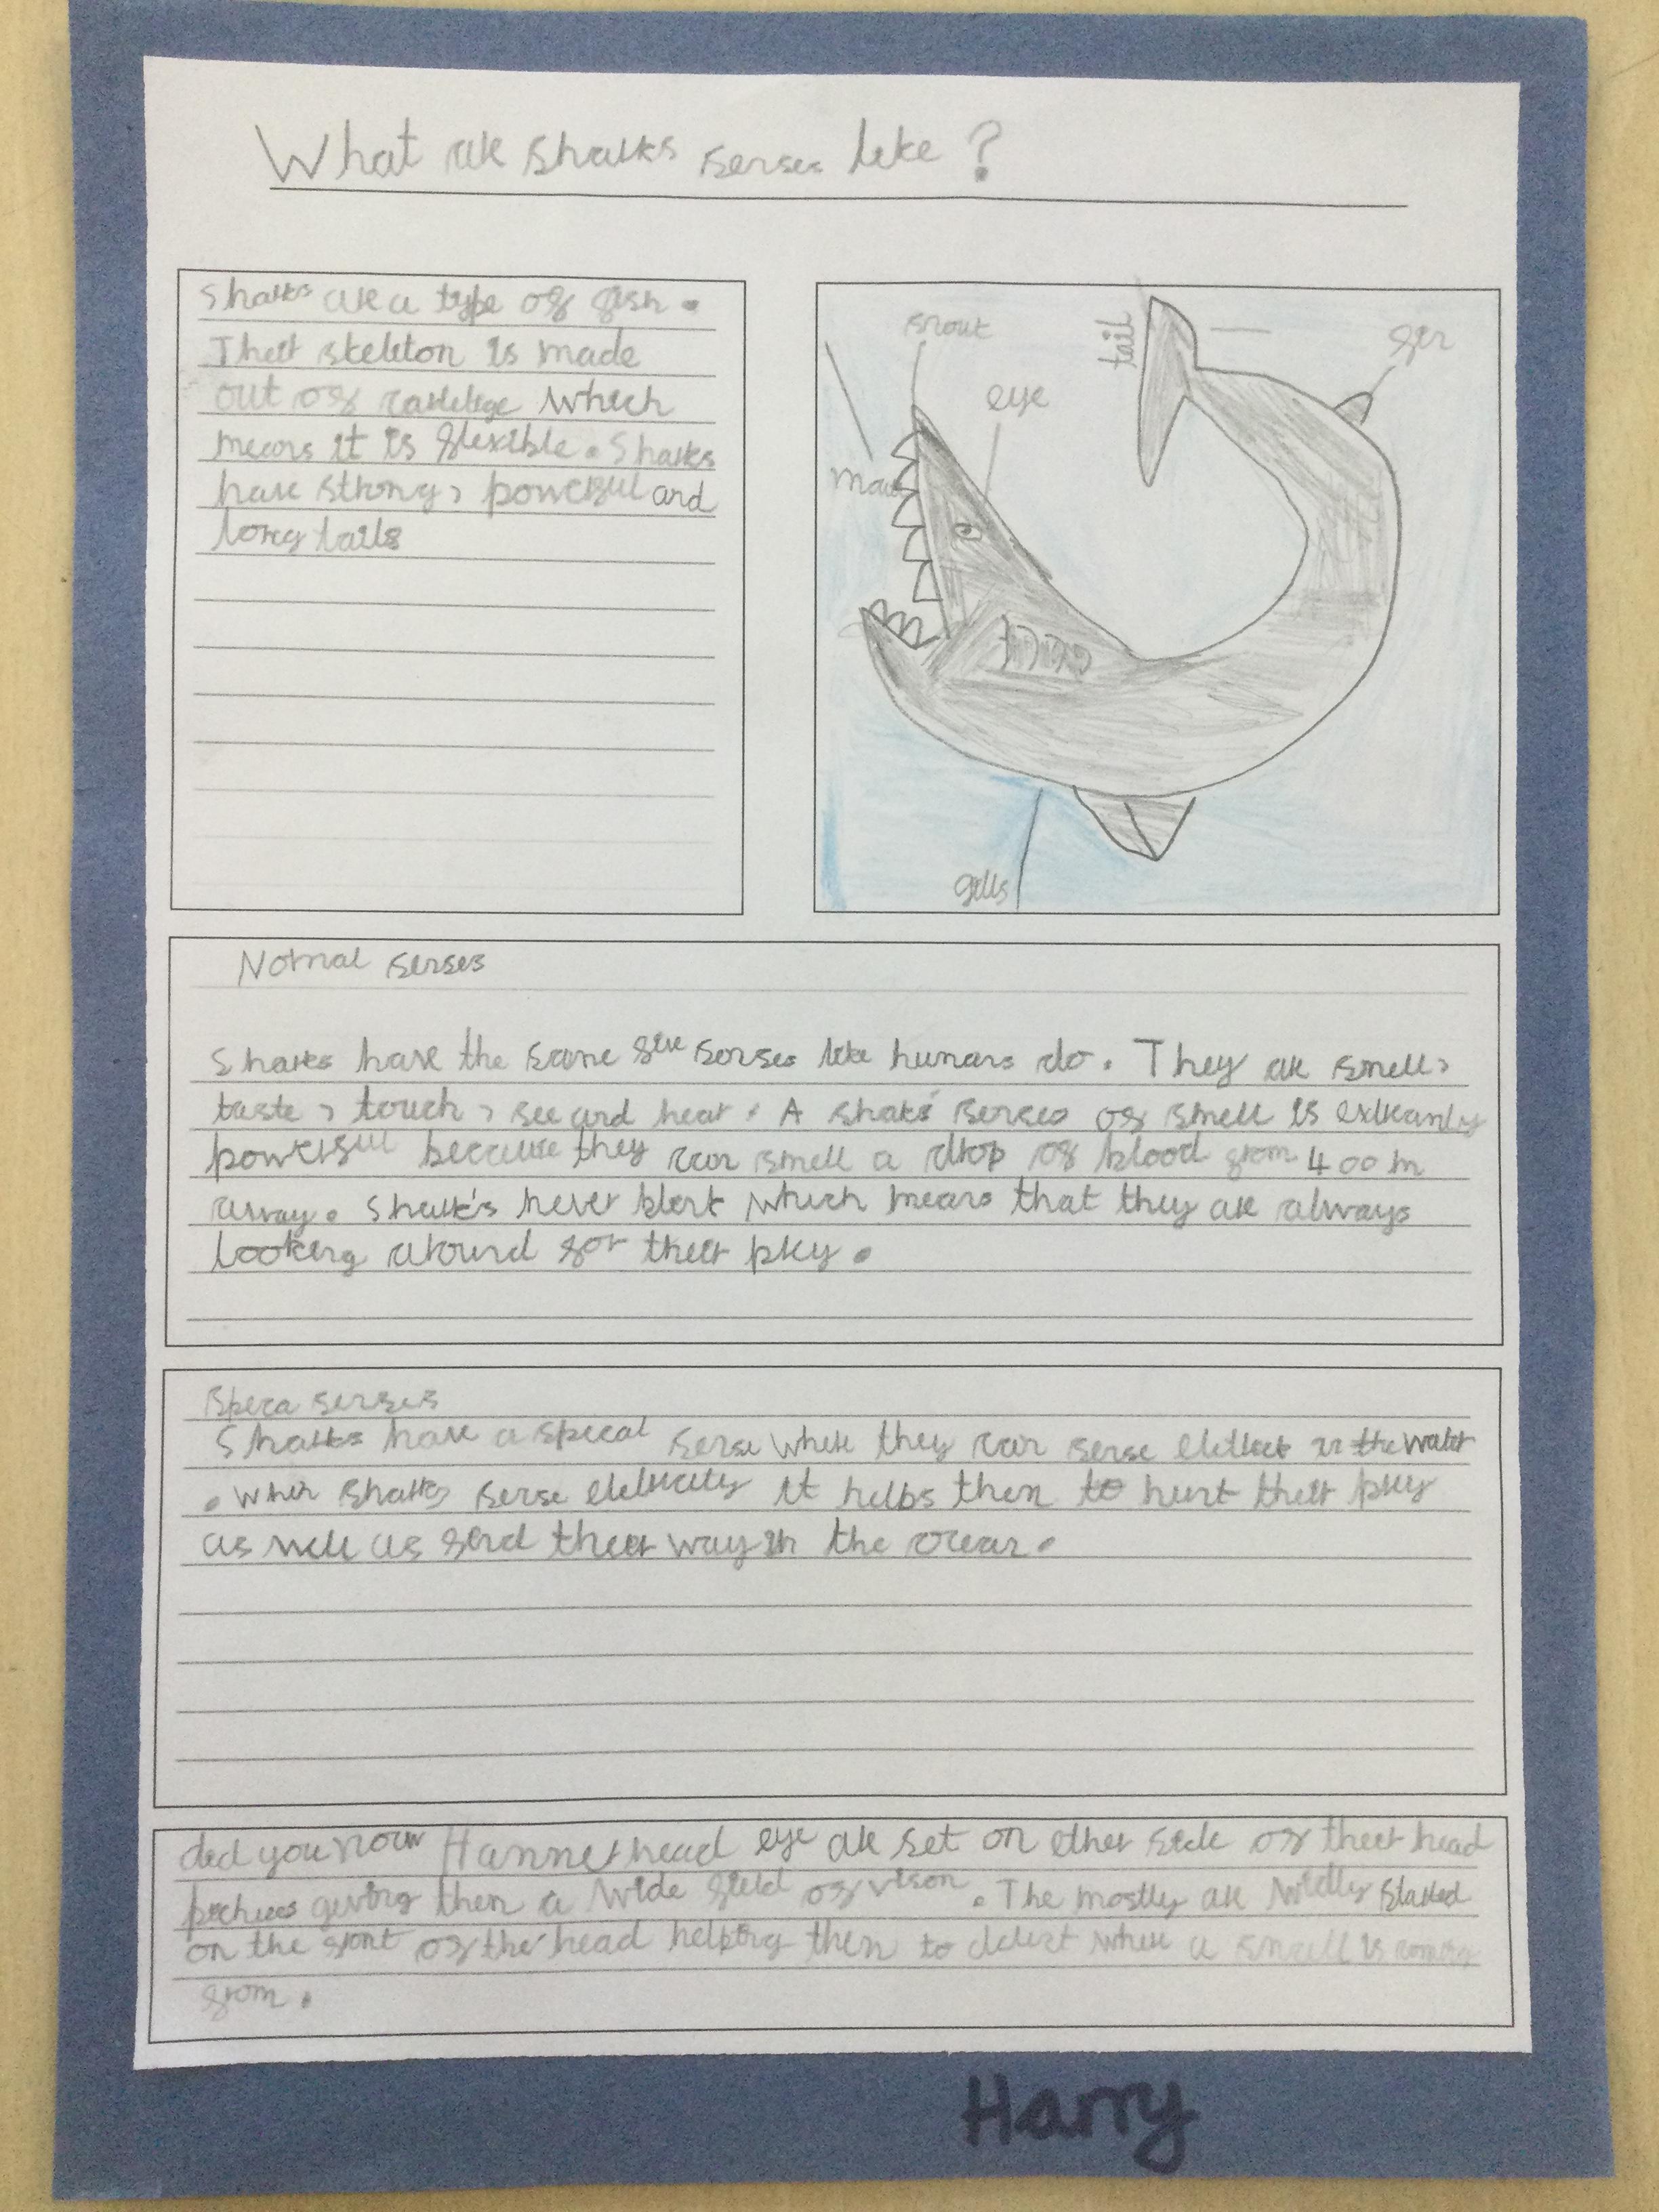 What are sharks senses like?
Sharks are a type of fish.
Their skeleton is made
out of cartilege which
means it is flexible. Sharks
have strong, powerful and
long tails
snout
eye
tail
fin
mou
gills
Normal senses
Sharks have the same five senses like humans do. They are smell,
taste, touch, see and hear. A shark's senses of smell is extreamly
powerful because they can smell a drop of blood from 400m
away. Shark's never blink which means that they are always
looking around for their prey.
Specia senses
Sharks have a special sense where they can sense in the water
. When sharks sense eletricity it helps them to hunt their prey
as well as find their way in the ocean.
did you now Hammerhead eye are set on ether side of their head
giving them a wide field of vison. The mostly are widly
on the front of the head helping them to detect where a smell is coming
from.
Harry